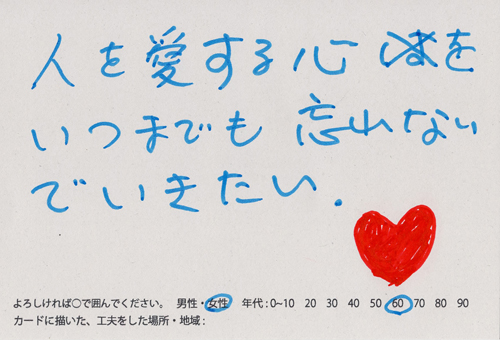 人を愛する心を
いつまでも忘れない
でいきたい.
よろしければ○で囲んでください。 男性・女性 年代:0~10 20 30 40 50 60 70 80 90
カードに描いた、工夫をした場所・地域: